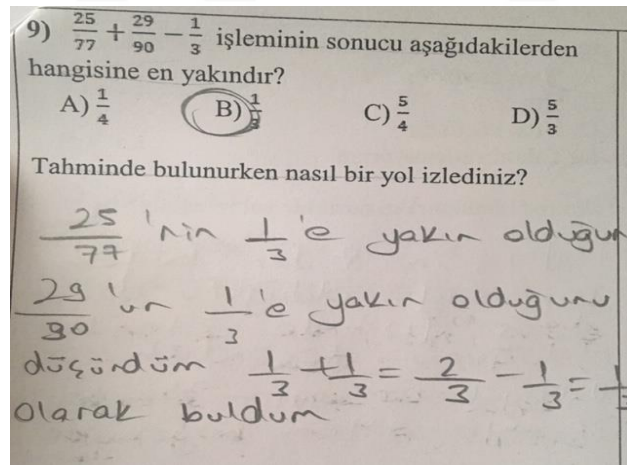 9) 25/77 + 29/90 - 1/3 işleminin sonucu aşağıdakilerden
hangisine en yakındır?
A) 1/4 B) 1/3 C) 5/4 D) 5/3
Tahminde bulunurken nasıl bir yol izlediniz?
25/77 'nin 1/3 'e yakın olduğun
29/90 'un 1/3 'e yakın olduğunu
düşündüm 1/3 + 1/3 = 2/3 - 1/3 = 1/3
olarak buldum